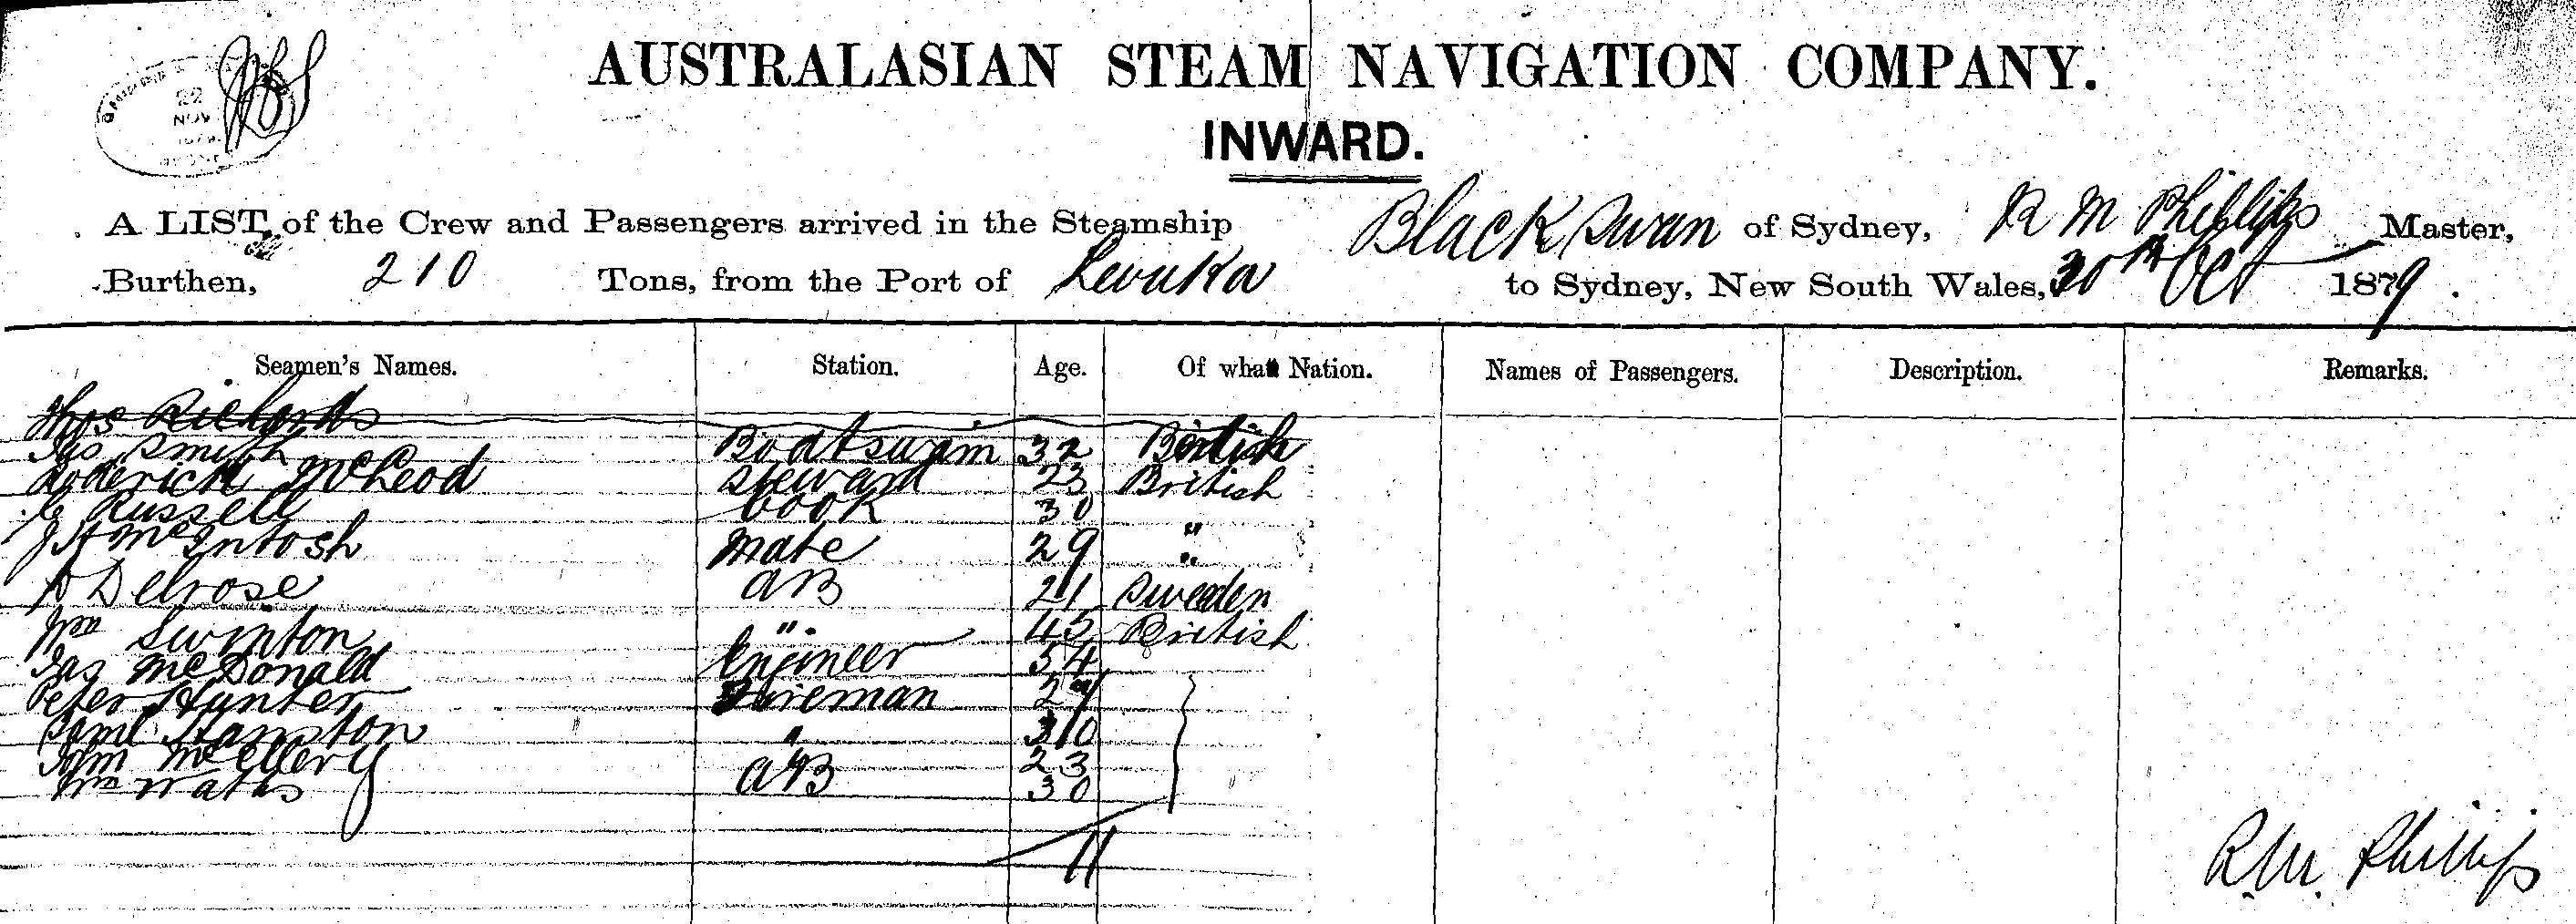 22
NOV
1879
AUSTRALASIAN STEAM NAVIGATION COMPANY.
INWARD.
A LIST of the Crew and Passengers arrived in the Steamship Black Swan of Sydney, R M Phillips Master,
Burthen, 210 Tons, from the Port of Levuka to Sydney, New South Wales, 30th Oct 1879.
Seamen's Names. Station. Age. Of what Nation. Names of Passengers. Description. Remarks.
Thos Richards
Jas Smith Boatswain 32 British
Roderick McLeod Steward 23 British
C Russell Cook 30 "
J H McIntosh Mate 29 "
A Delrose AB 21 Sweden
Wm Swinton " 45 British
Jas McDonald Engineer 54
Peter Hunter Fireman 29
Saml Hamston " 30
John McEllery AB 23
Wm Watts 30
11
R.M. Phillips